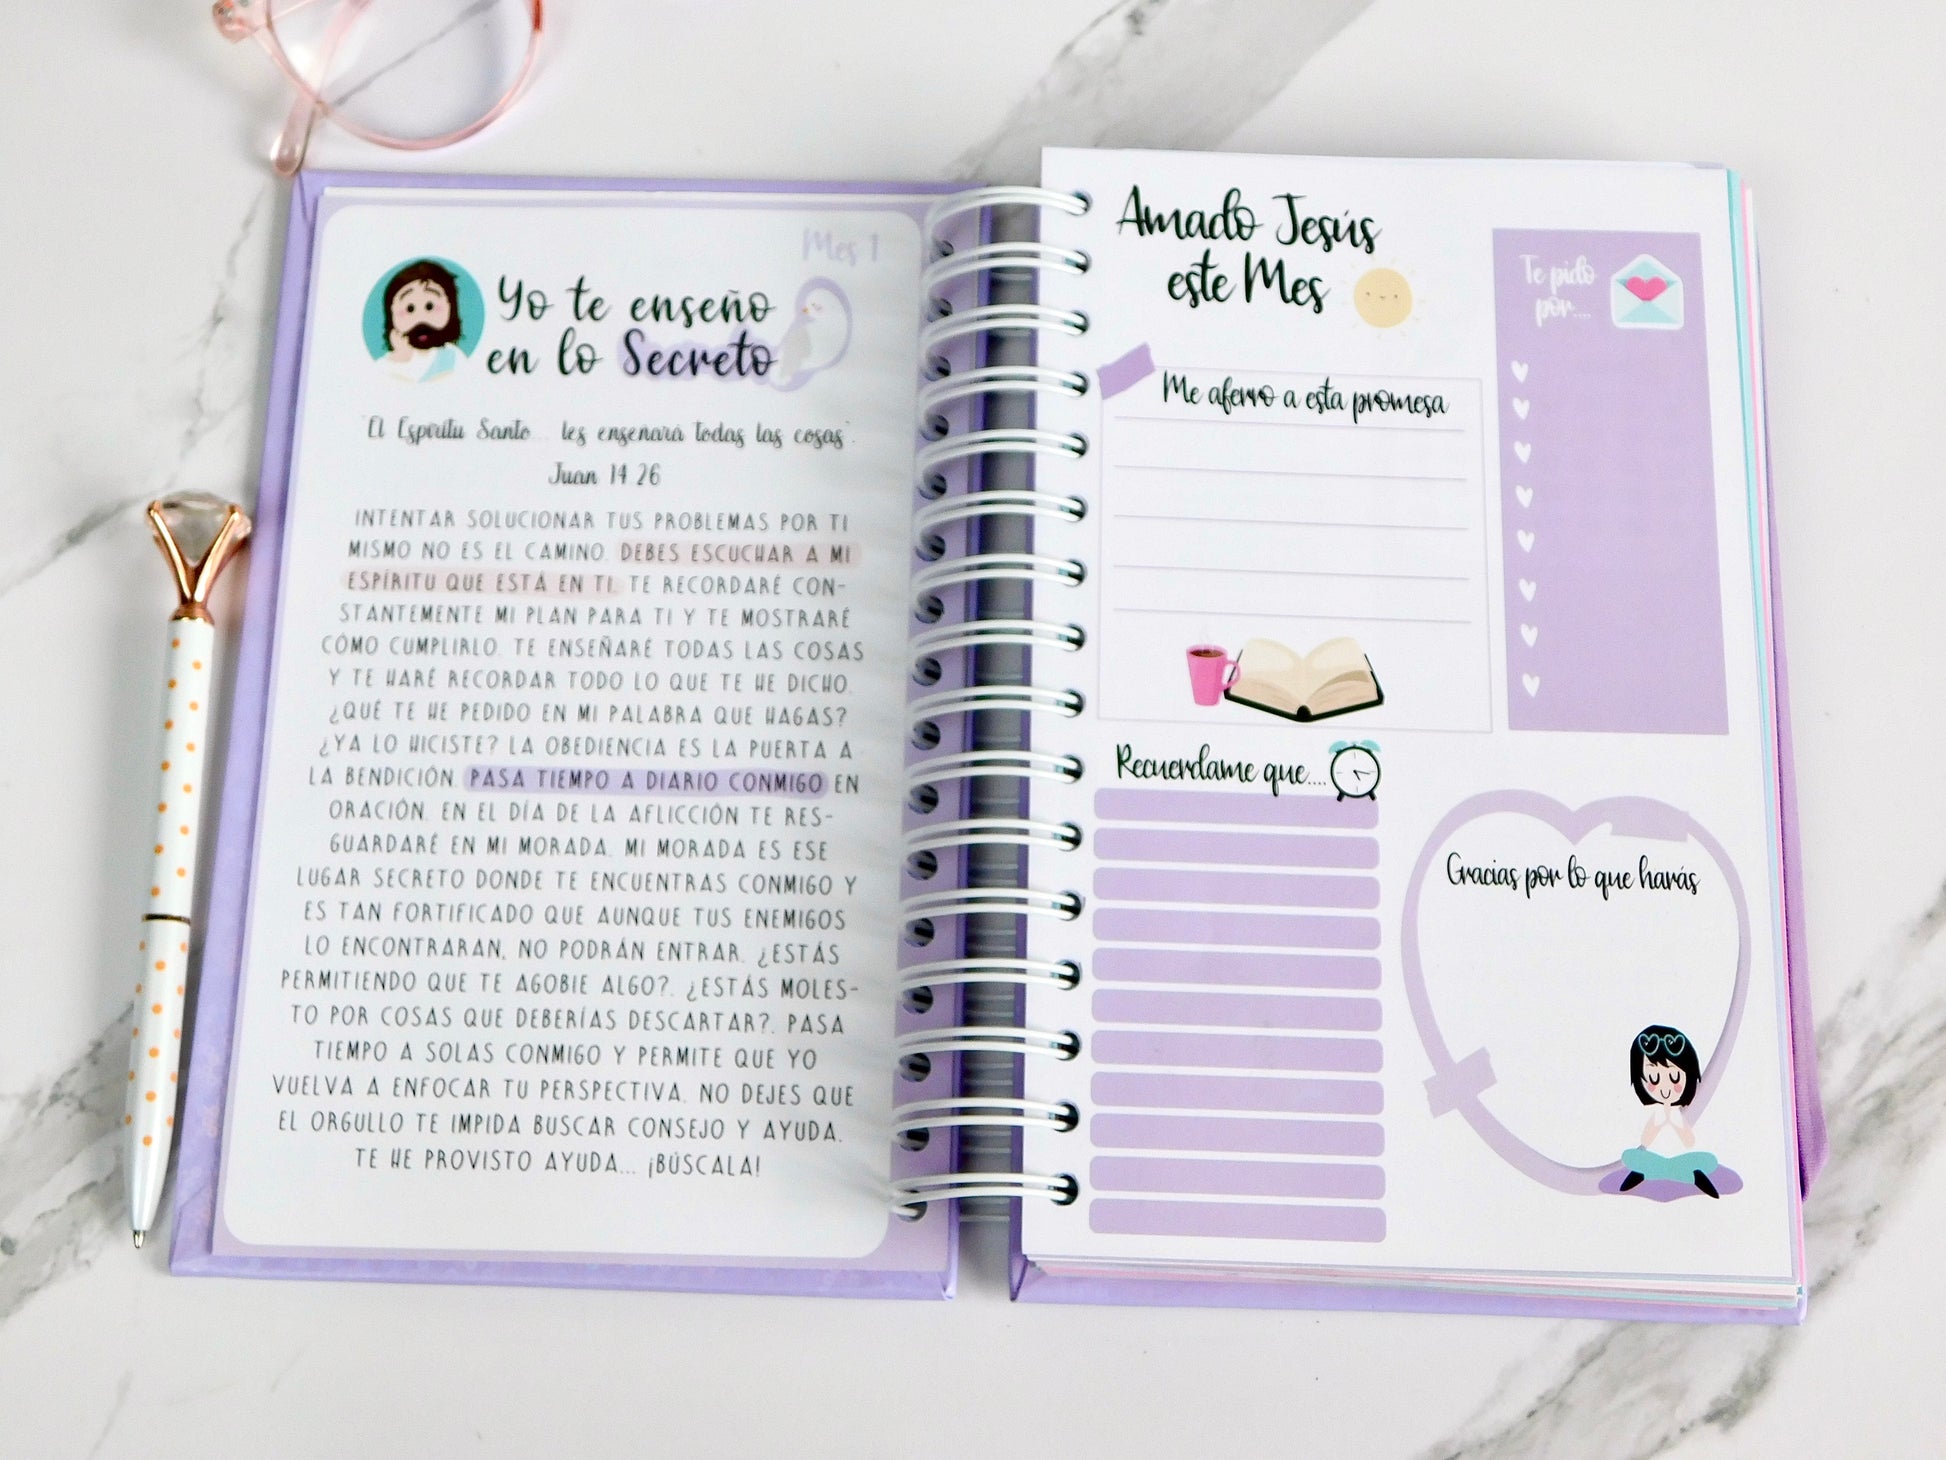 Mes 1
Yo te enseño
en lo Secreto
"El Espíritu Santo... les enseñará todas las cosas".
Juan 14:26
INTENTAR SOLUCIONAR TUS PROBLEMAS POR TI
MISMO NO ES EL CAMINO. DEBES ESCUCHAR A MI
ESPÍRITU QUE ESTÁ EN TI. TE RECORDARÉ CON-
STANTEMENTE MI PLAN PARA TI Y TE MOSTRARÉ
CÓMO CUMPLIRLO. TE ENSEÑARÉ TODAS LAS COSAS
Y TE HARÉ RECORDAR TODO LO QUE TE HE DICHO.
¿QUÉ TE HE PEDIDO EN MI PALABRA QUE HAGAS?
¿YA LO HICISTE? LA OBEDIENCIA ES LA PUERTA A
LA BENDICIÓN. PASA TIEMPO A DIARIO CONMIGO EN
ORACIÓN. EN EL DÍA DE LA AFLICCIÓN TE RES-
GUARDARÉ EN MI MORADA. MI MORADA ES ESE
LUGAR SECRETO DONDE TE ENCUENTRAS CONMIGO Y
ES TAN FORTIFICADO QUE AUNQUE TUS ENEMIGOS
LO ENCONTRARAN, NO PODRÁN ENTRAR. ¿ESTÁS
PERMITIENDO QUE TE AGOBIE ALGO?. ¿ESTÁS MOLES-
TO POR COSAS QUE DEBERÍAS DESCARTAR?. PASA
TIEMPO A SOLAS CONMIGO Y PERMITE QUE YO
VUELVA A ENFOCAR TU PERSPECTIVA. NO DEJES QUE
EL ORGULLO TE IMPIDA BUSCAR CONSEJO Y AYUDA.
TE HE PROVISTO AYUDA... ¡BÚSCALA!
Amado Jesús
este Mes
Me aferro a esta promesa
Te pido
por....
Recuerdame que....
Gracias por lo que harás